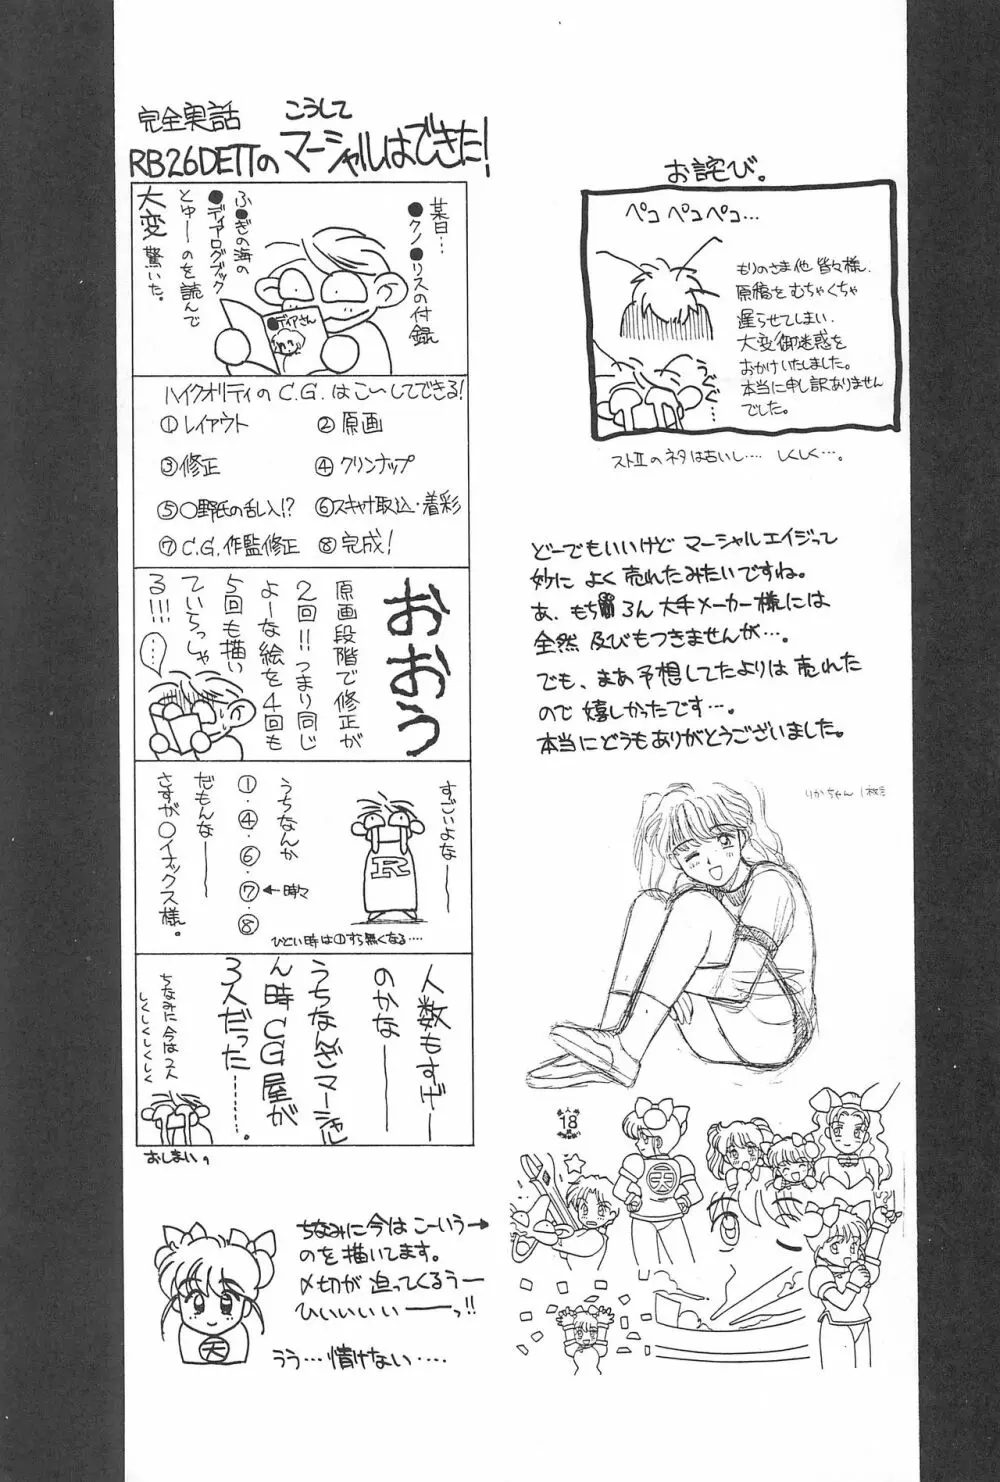 完全実話
こうして
RB26DETTのマーシャルはできた!
某日…
●クノ●リスの付録
ふ●ぎの海の
●ディアログブック
とゅーのを読んで
大変驚いた。
●ディアさん
ハイクオリティのC.G.はこ〜してできる!
①レイアウト
②原画
③修正
④クリンナップ
⑤〇野氏の乱入!?
⑥スキャナ取込・着彩
⑦C.G.作監修正
⑧完成!
おおう
原画段階で修正が
2回!!つまり同じ
よーな絵を4回も
5回も描い
ていらっしゃ
る!!!
(……)
すごいよなーー
うちなんか
①・④・⑥・⑦・⑧
←時々
だもんなーー
さすが〇イナックス様。
R
ひどい時は①すら無くなる‥‥
人数もすげー
のかなーー
うちなんざマーシャル
ん時CG屋が
3人だった………。
ちなみに今は2人
しくしくしくしく
おしまい。
お詫び。
ペコ ペコペコ…
もりのさま他 皆々様、
原稿をむちゃくちゃ
遅らせてしまい、
大変御迷惑を
おかけいたしました。
本当に申し訳ありません
でした。
ストⅡのネタは古いし‥‥ しくしく…。
どーでもいいけど マーシャルエイジって
妙に よく 売れたみたいですね。
あ、もちろん 大手メーカー様には
全然 及びもつきませんが…。
でも、まあ予想してたよりは売れた
ので 嬉しかったです…。
本当にどうもありがとうございました。
りかちゃん 1枚
18
天
ちなみに今は こーいう→
のを描いてます。
〆切が 迫ってくるうー
ひいいいい――っ!!
うう…情けない‥‥
天